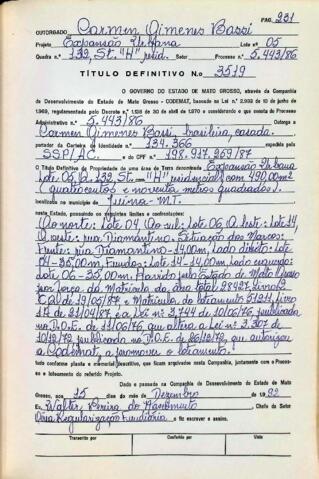 PAG. 231
OUTORGADO Carmen Gimenes Bassi
Projeto Expansão Urbana Lote nº 05
Quadra n.º 132, St. "H" resid. Processo n.º 5.443/86
TÍTULO DEFINITIVO N.o 3519
O GOVERNO DO ESTADO DE MATO GROSSO, através da Companhia
de Desenvolvimento do Estado de Mato Grosso - CODEMAT, baseado na Lei n.º 2.902 de 10 de junho de
1969, regulamentada pelo Decreto n.º 1.138 de 30 de abril de 1970 e considerando o que consta do Processo
Administrativo n.º 5.443/86 Outorga a
Carmen Gimenes Bassi, brasileira, casada.
portador da Carteira de Identidade n.º 134.366
SSP/AC. e do CPF n.º 198.917.369/87
O Título Definitivo de Propriedade de uma área de Terra denominada Expansão Urbana
Lote 05, Q. 132, St. "H" residencial, com 490,00m²
(quatrocentos e noventa metros quadrados).
localizada no município de Juina-MT.
neste Estado, possuindo os seguintes limites e confrontações:
Ao norte: Lote 04. Ao sul: Lote 06, A leste: Lote 14,
A oeste: rua Diamantino. Extensão dos Marcos:
Frente: rua Diamantino - 14,00m, Lado direito: lote
04 - 35,00m, Fundos: Lote 14 - 14,00m Lado esquerdo:
Lote 06 - 35,00m. Havido pelo Estado de Mato Grosso
por força da Matrícula da área total 28427, Livro 2
C2U de 19/05/87 e Matrícula do loteamento 51211, Livro
1A de 21/04/87 e a Lei nº 3.744 de 10/06/76, publicada
no D.O.E. de 11/06/76 que altera a Lei nº 3.307 de
10/12/72 publicada no D.O.E. de 26/12/72, que autorizou
a Codemat, a promover o loteamento.
tudo conforme planta e memorial descritivo, que ficam arquivados nesta Companhia, juntamente com o Proces-
so e loteamento do referido Projeto.
Dado e passado na Companhia de Desenvolvimento do Estado de Mato
Grosso, aos 15 dias do mês de Dezembro de 1992
Eu, Walter Pereira do Nascimento Chefe da Setor
de Regularização Fundiária o fiz escrever e assino.
Transcrito por
Conferido por
Visto